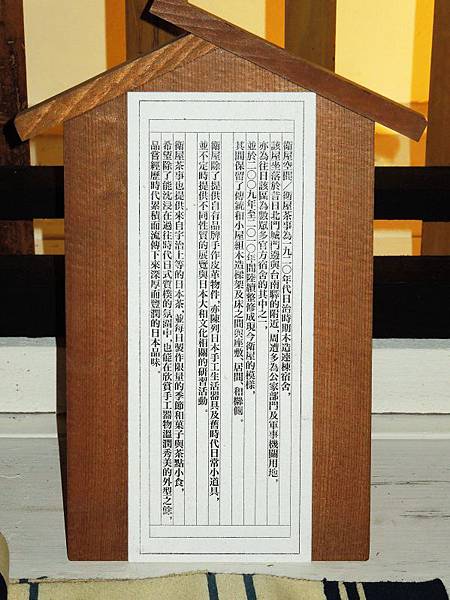 衛屋空間／衛屋茶事為一九二〇年代日治時期木造連棟宿舍，
該屋坐落於昔日北門城門邊與台南驛的附近，周遭多為公家部門及軍事機關用地，
亦為往日該區為數眾多官方宿舍的其中之一，
並於二〇〇九年至二〇一〇年間陸續整修成現今衛屋的模樣，
其間保留了傳統和小屋組木造樑架及床之間與座敷、居間、和緣側。
衛屋除了提供自有品牌手作皮革物件，亦陳列日本手工生活器具及舊時代日常小道具，
並不定時提供不同性質的展覽與日本大和文化相關的研習活動。
衛屋茶事也提供來自宇治上等的日本茶，並每日製作限量的季節和菓子與茶點小食，
希望除了能沈浸在過往時代日式質樸的氛圍中，也能在欣賞手工器物溫潤秀美的外型之餘，
品嘗經歷時代累積而流傳下來深厚而豐潤的日本品味。